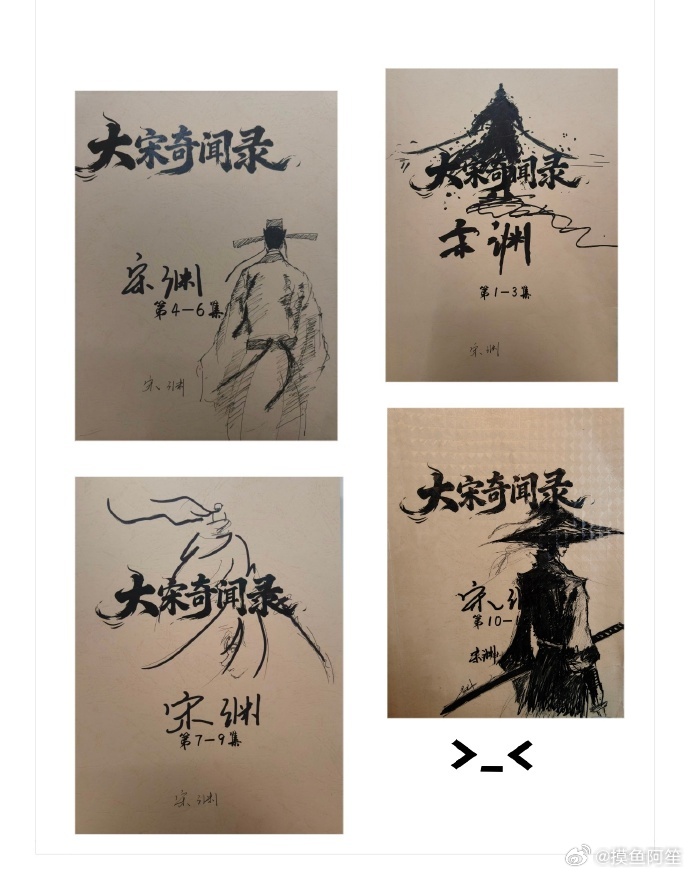 大宋奇闻录
宋渊
第4-6集
宋渊
大宋奇闻录
宋渊
第1-3集
宋渊
大宋奇闻录
宋渊
第7-9集
宋渊
大宋奇闻录
宋
第10-
宋渊
>_<
@摸鱼阿笙